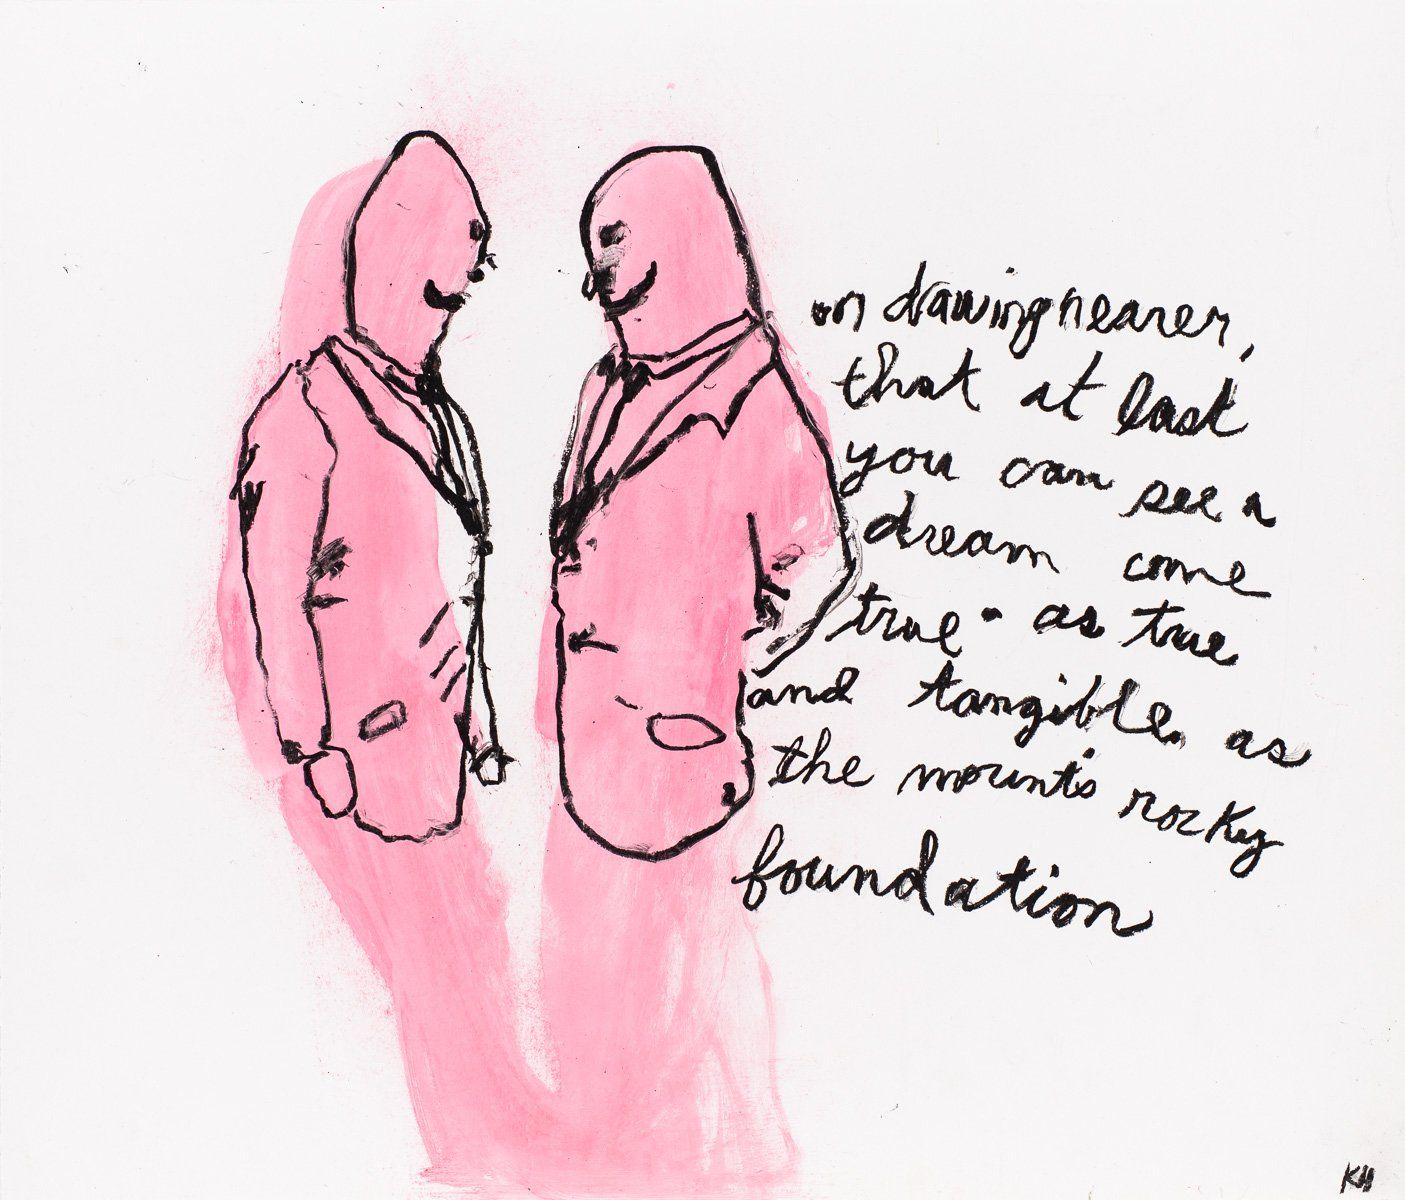 on drawing nearer,
that at last
you can see a
dream come
true - as true
and tangible as
the mount's rocky
foundation
KH